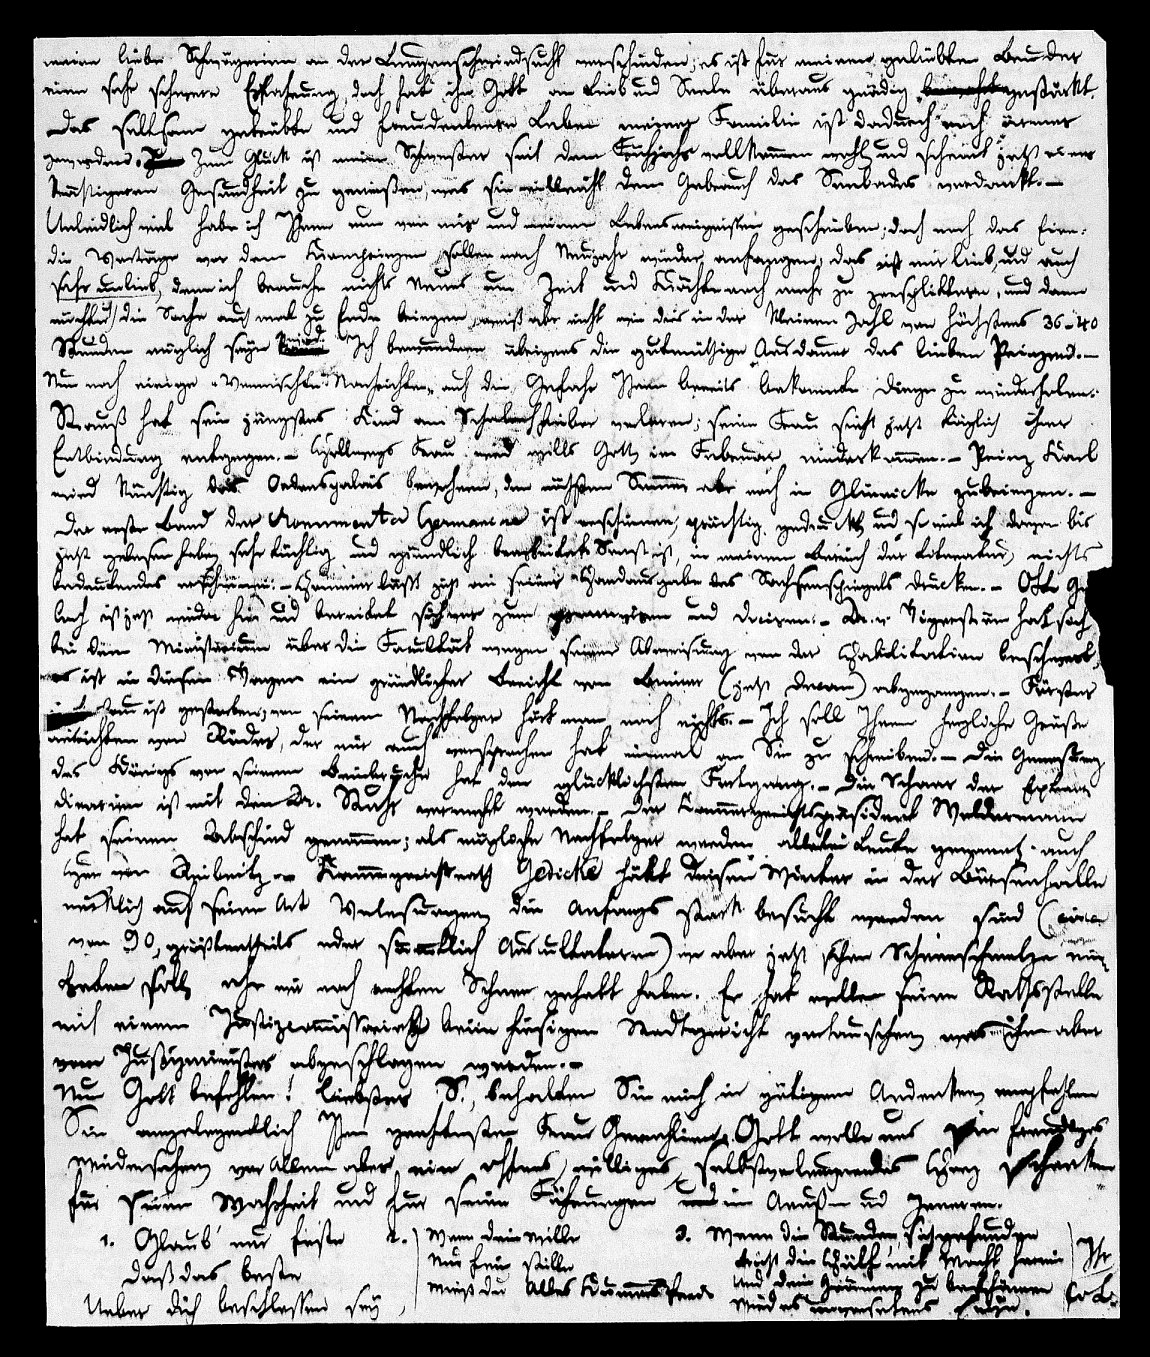 meine liebe Schwägerinn an der Lungenschwindsucht verschieden; es ist für meinen geliebten Bruder
eine sehr schwere Erfahrung, doch hat ihn Gott an Leib und Seele überaus gnädig gestärkt.
Das seltsam getrübte und freudenleere Leben meiner Familie ist dadurch noch ärmer
geworden. Zum Glück ist meine Schwester seit dem Frühjahr vollkommen wohl und scheint jetzt einer
kräftigeren Gesundheit zu genießen, was sie vielleicht dem Gebrauch des Seebades verdankt. –
Unleidlich viel habe ich Ihnen nun von mir und meinen Lebensereignissen geschrieben; doch noch das Eine:
die Vorträge vor dem Kronprinzen sollen nach Neujahr wieder anfangen; das ist mir lieb, und auch
sehr unlieb, denn ich brauche nichts Neues um Zeit und Kräfte noch mehr zu zersplittern, und dann
möchte ich die Sache auch mal zu Ende bringen, weiß aber nicht wie dies in der kleinen Zahl von höchstens 36–40
Stunden möglich seyn wird. Ich bewundere übrigens die gutmüthige Ausdauer des lieben Prinzen. –
Nun noch einige „Vermischte Nachrichten“ auf die Gefahr Ihnen bereits bekannte Dinge zu wiederholen.
Strauß hat sein jüngstes Kind am Scharlachfieber verloren; seine Frau sieht jetzt täglich ihrer
Entbindung entgegen. – Frau wird wills Gott im Februar niederkommen. – Prinz Karl
wird künftig das Ordenspalais bewohnen, den nächsten Sommer aber noch in Glienicke zubringen. –
Der erste Band der Monumenta Germaniae ist erschienen, prächtig gedruckt, und so viel ich davon bis
jetzt gelesen habe, sehr tüchtig und gründlich bearbeitet. Sonst ist, in meinem Bereich der Literatur, nichts
bedeutendes erschienen. – läßt jetzt an seiner Handausgabe des Sachsenspiegels drucken. – Otto
lach ist jetzt wieder hier und bereitet sich vor zum und Dociren. – Dr. v. hat sich
bei dem Ministerium über die Facultät wegen seiner Abweisung von der Habilitation beschwert,
es ist in diesen Tagen ein gründlicher Bericht von (jetzt Decan) abgegangen. –
ist gestorben; von seinem Nachfolger hört man noch nichts. – Ich soll Ihnen herzliche Grüße
ausrichten von der mir auch versprochen hat einmal an Sie zu schreiben. – Die Genesung
des Königs von seinem Beinbruche hat den glücklichsten Fortgang. – Die Schaar der
ist mit dem Dr. vermehrt worden. – Der Kammergerichtspräsident Woldermann
hat seinen Abschied genommen; als mögliche Nachfolger werden allerlei Leute genannt, auch
Herr von Reibnitz. – Kammergerichtsrath Gedicke hält diesen Winter in der Börsenhalle
nämlich auf seine Art Vorlesungen, die anfangs stark besucht worden sind (
von 90, größtentheils oder sämmtlich Auscultatoren) wo aber jetzt schon Schneeschmelze
haben soll, ohne je noch rechten Schnee gehabt haben. Er hat wollen seine Rathsstelle
mit einem Justizcommissariat beim hiesigen Stadtgericht vertauschen, was ihm aber
vom Justizminister abgeschlagen worden. –
Nun Gott befohlen! liebster S., behalten Sie mich in gütigem Andenken, empfehlen
Sie angelegentlich Ihrer verehrtesten Frau Gemahlinn. Gott wolle uns ein freudiges
Wiedersehen, vor allem aber ein offnes, williges, selbstverleugnendes Herz schenken
für Seine Wahrheit und für seine Führungen im Aeußern und Inneren.
1. Glaub' nur feste
daß das beste
Ueber dich beschlossen sey,
2. Wenn dein Wille
Nur fein stille
wirst du
3. Wenn die Stunden, sich gefunden
bricht die Hülf' mit Macht herein
Und dein Grämen zu beschämen
Wird es unversehens seyn.
Ihr